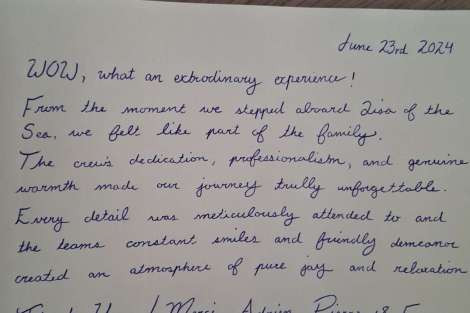 June 23rd 2024
WOW, what an extrodinary experience!
From the moment we stepped aboard Lisa of the
Sea, we felt like part of the family.
The crew's dedication, professionalism, and genuine
warmth made our journey trully unforgettable.
Every detail was meticulously attended to and
the teams constant smiles and friendly demeanor
created an atmosphere of pure joy and relaxation